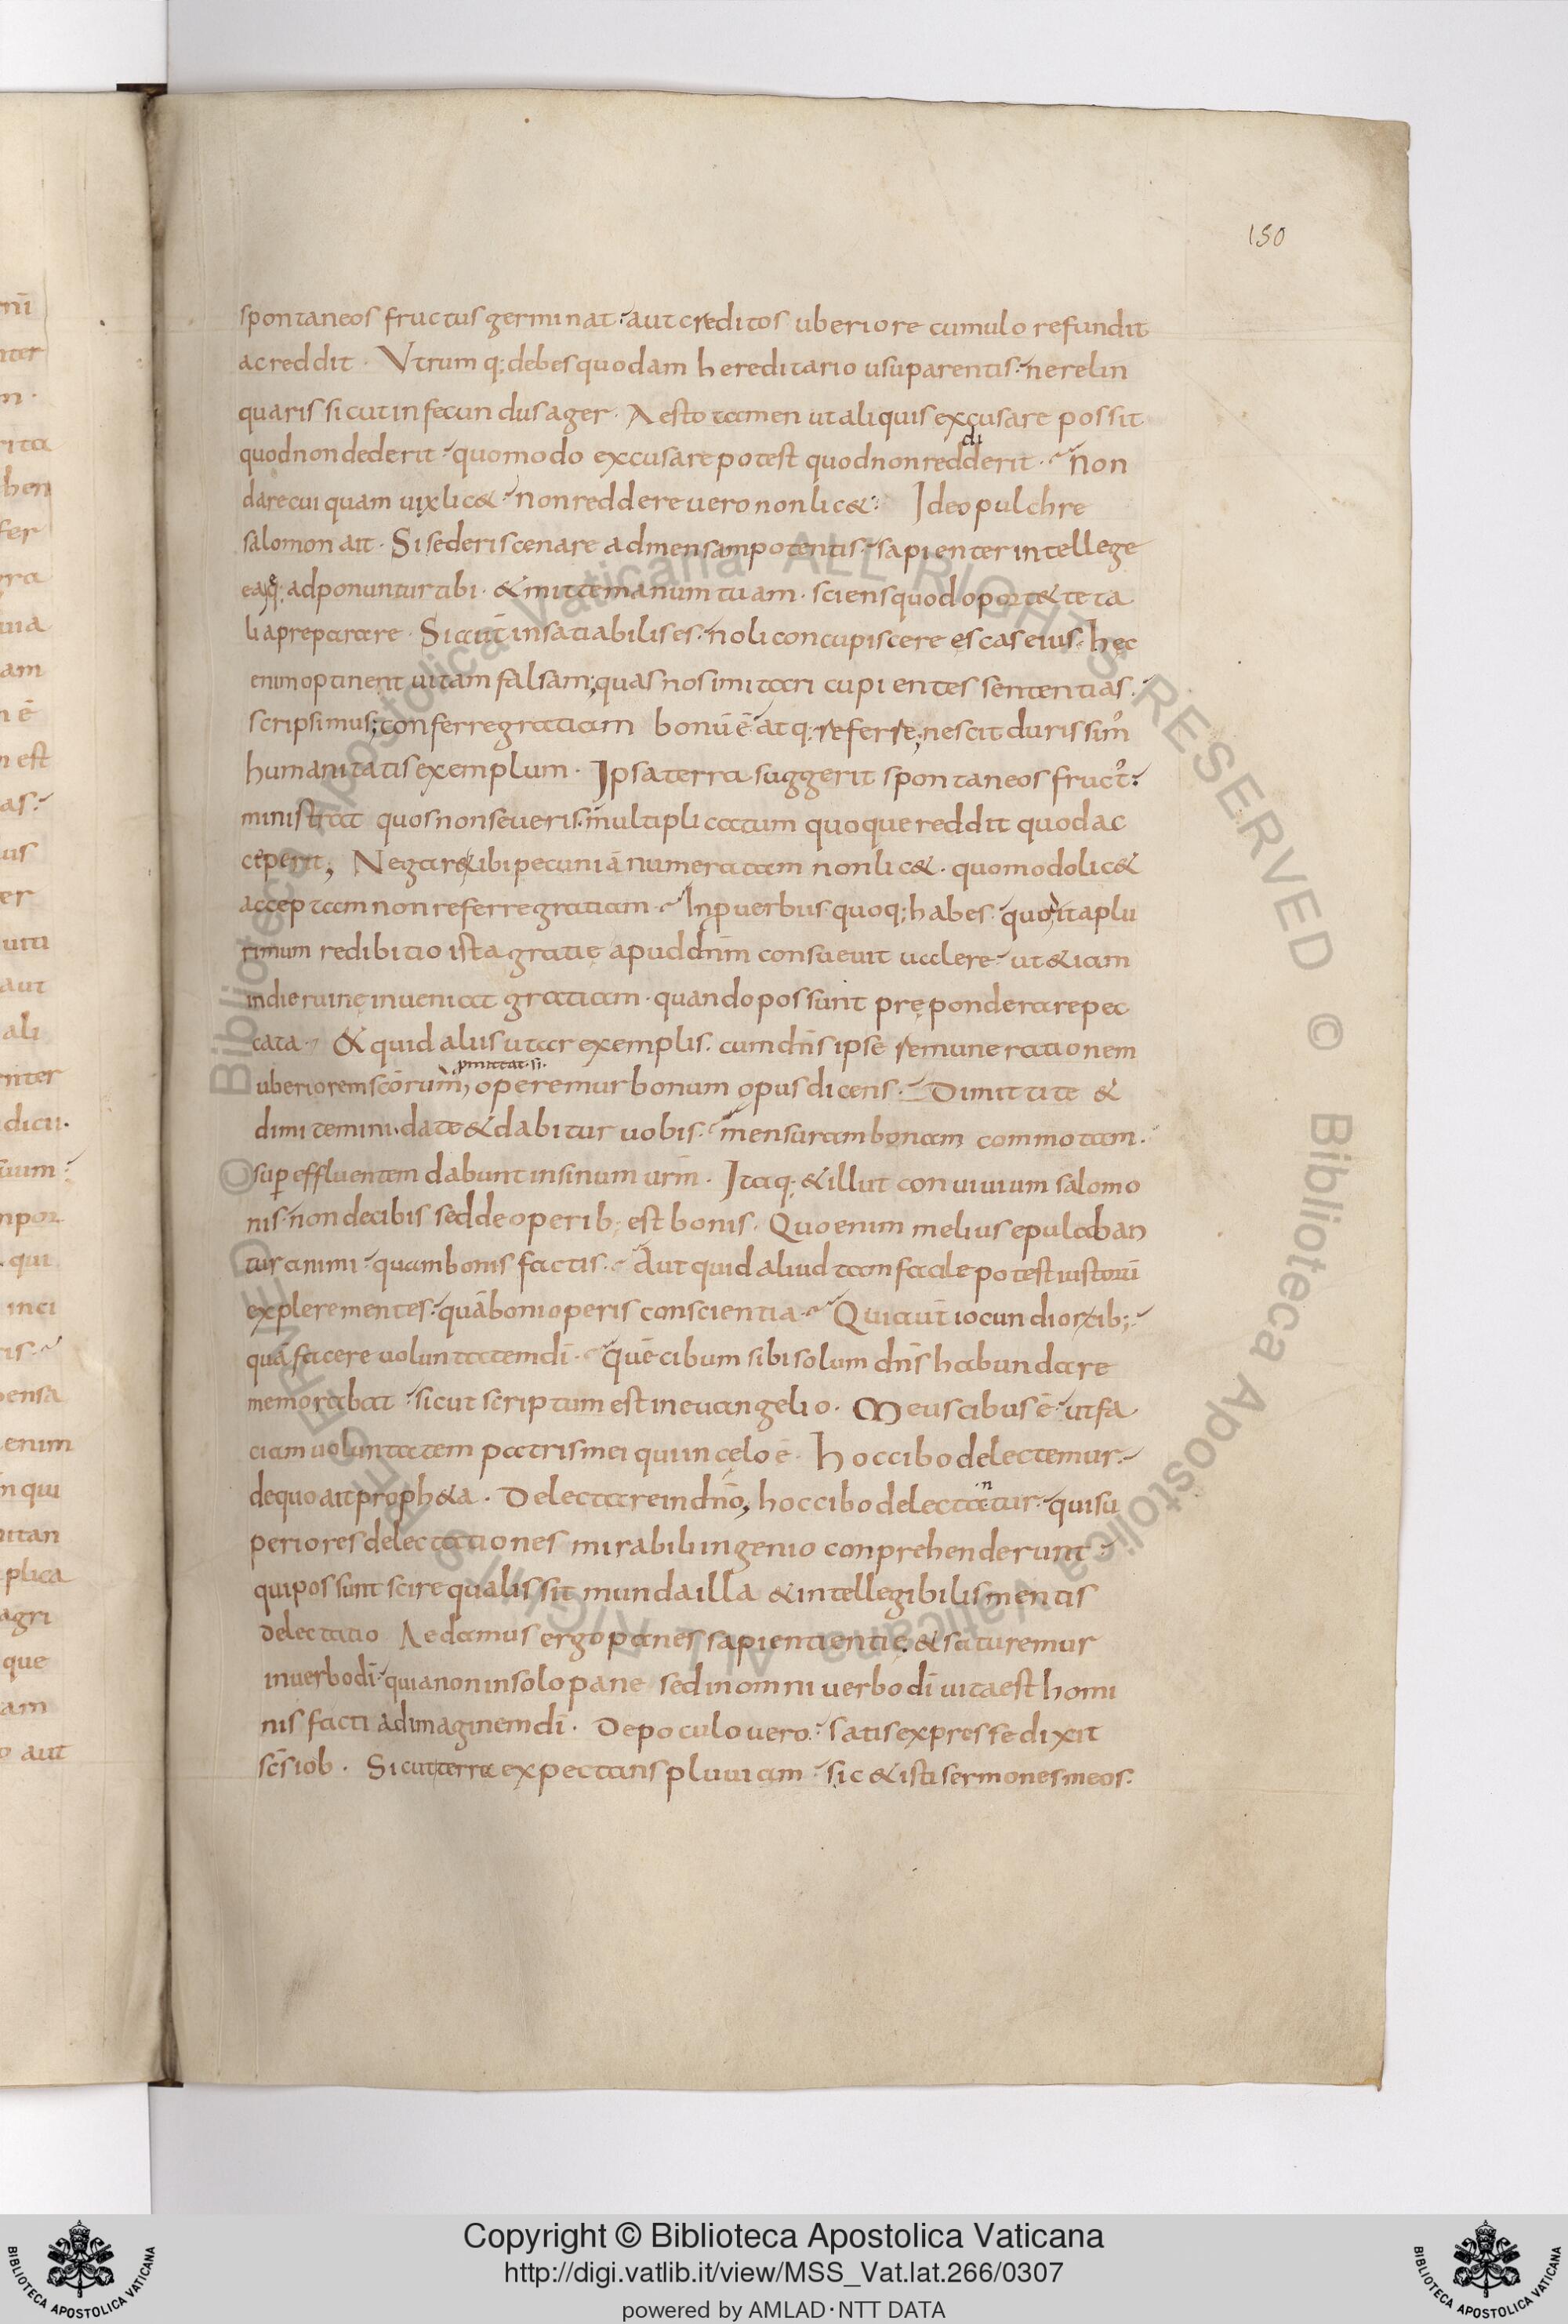 150
spontaneos fructus germinat aut creditos uberiore cumulo refundit
ac reddit. Vtrumq; debes quodam hereditario usu parentis. ne relin
quaris sicut infecundus ager. Aesto tamen ut aliquis excusare possit
quod non dederit quomodo excusare potest quod non reddiderit. Non
dare cuiquam uix lic& non reddere uero non lic&. Ideo pulchre
salomon ait. Si sederis cenare ad mensam potentis. sapienter intellege
ea q; adponuntur tibi. & mitte manum tuam. sciens quod oport& te ta
lia preparare. Si aut̄ insatiabilis es. noli concupiscere escas eius. hęc
enim optinent uitam falsam; quas nos imitari cupientes sententias.
scripsimus; conferre gratiam bonū ē atq; referre; nescit durissim᾿
humanitatis exemplum. Ipsa terra suggerit spontaneos fruct᾿.
ministrat quos non seueris. multiplicatum quoque reddit quod ac
ceperit, Negare tibi pecuniā numeratam non lic&. quomodo lic&
acceptam non referre gratiam. In puerbiis quoq; habes quod ita plu
rimum redibitio ista gratię apud dn̄m consueuit ualere. ut &iam
in die ruinę inueniat gratiam. quando possunt pręponderare pec
cata. & quid aliis utar exemplis. cum dn̄s ipse remunerationem
uberiorem scōrum pmittat. si. operemur bonum opus dicens. Dimittite &
dimitemini. date & dabitur uobis. mensuram bonam commotam.
sup effluentem dabunt in sinum urm̄. Itaq; & illut conuiuium salomo
nis. non de cibis sed de operib; est bonis. Quo enim melius epulaban
tur animi quam bonis factis. Aut quid aliud tam facile potest iustorū
explere mentes. quā boni operis conscientia. Qui aut̄ iocundior cib;
quā facere uoluntatem dī. quē cibum sibi solum dn̄s habundare
memorabat sicut scriptum est in euangelio. Meus cibus ē ut fa
ciam uoluntatem patris mei qui in cęlo ē. hoc cibo delectemur.
de quo ait proph&a. Delectare in dn̄o, hoc cibo delectantur. qui su
periores delectationes mirabili ingenio conprehenderunt.
qui possunt scire qualis sit munda illa & intellegibilis mentis
delectatio Aedamus ergo panes sapientientię. & saturemur
in uerbo dī. quia non in solo pane sed in omni uerbo dī uita est homi
nis facti ad imaginem dī. De poculo uero. satis expresse dixit
sc̄s iob. Sicut terra expectans pluuiam. sic & isti sermones meos.
Copyright © Biblioteca Apostolica Vaticana
http://digi.vatlib.it/view/MSS_Vat.lat.266/0307
powered by AMLAD·NTT DATA